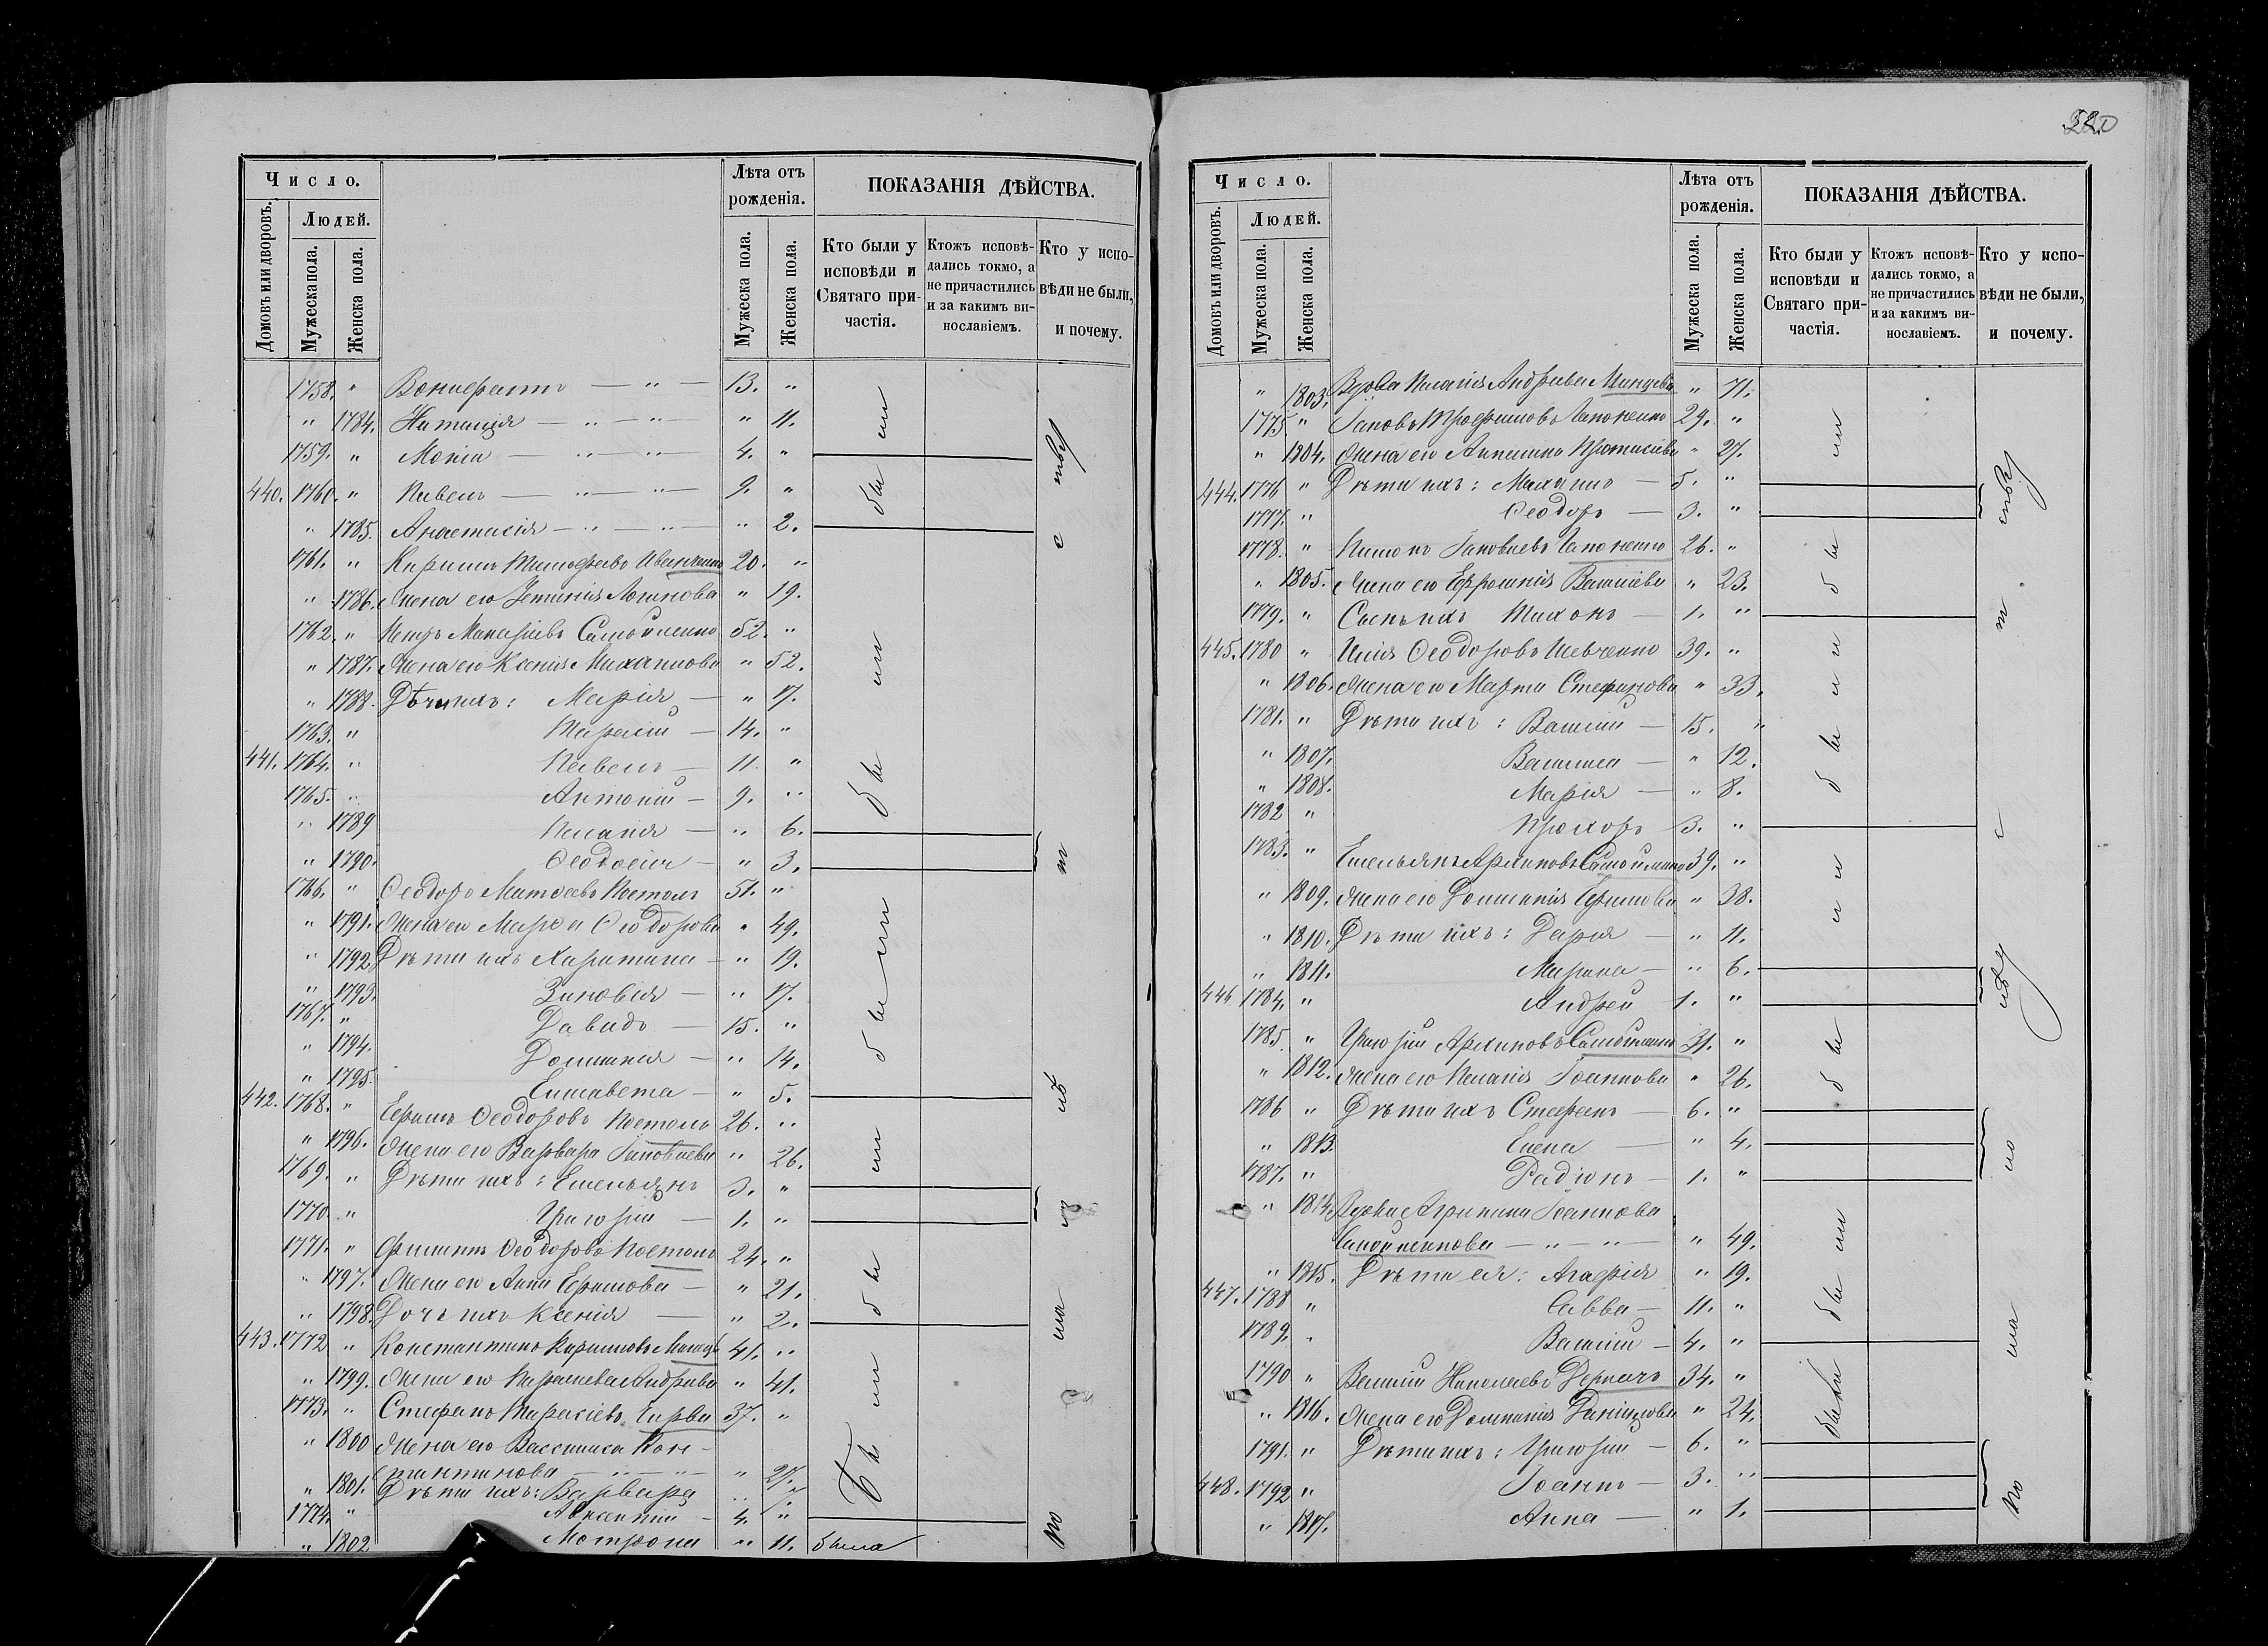 520
Число.
Людей.
Домовъ или дворовъ.
Мужеска пола.
Женска пола.
Лѣта отъ рожденія.
Мужеска пола.
Женска пола.
ПОКАЗАНІЯ ДѢЙСТВА.
Кто были у исповѣди и Святаго причастія.
Ктожъ исповѣдались токмо, а не причастились и за какимъ винославіемъ.
Кто у исповѣди не были, и почему.
1758. " Вонифатъ — " — 13. "
" 1784. Наталія — " — " — " 11.
1759. " — " — " — 4. "
440. 1760. " Павелъ — " — " — 9. "
" 1785. Анастасія — " — " — " 2.
1761. " Кирилъ Тимофеевъ Иваненко 20. "
" 1786. Жена его Логинова " 19.
1762. " Петръ Макаріевъ Самойленко 52. "
" 1787. Жена его Ксенія Михаилова " 52.
" 1788. Дѣти ихъ: Марія — " 17.
1763. " Тарасій — 14. "
441. 1764. " Павелъ — 11. "
1765. " Антоній — 9. "
" 1789 Пелагія — " 6.
" 1790. Ѳеодосія — " 3.
1766. " Ѳеодоръ Матѳеевъ Костоль 51. "
" 1791. Жена его Марѳа Ѳеодорова " 49.
" 1792 Дѣти ихъ Харитина — " 19.
" 1793. Зиновія — " 17.
1767. " Давидъ — 15. "
" 1794. Домникія — " 14.
" 1795. Елисавета — " 5.
442. 1768. " Ефимъ Ѳеодоровъ Костоль 26. "
" 1796. Жена его Варвара Іаковлева " 26.
1769. " Дѣти ихъ: Емельянъ 3. "
1770. " Григорій — 1. "
1771. " Филиппъ Ѳеодоровъ Костоль 24. "
" 1797. Жена его Анна Ефимова — " 21.
" 1798. Дочь ихъ Ксенія — " 2.
443. 1772 " Константинъ Кириловъ 41. "
" 1799. Жена его Параскева Андреева " 41.
1773. " Стефанъ Тарасіевъ 37. "
" 1800 Жена его Вассилиса Кон-
стантинова — " — " — " 27.
" 1801. Дѣти ихъ: Варвара " 7.
1774. " Авксентій — 4. "
" 1802 Мотрона " 11. была
были
были
были
были
Число.
Людей.
Домовъ или дворовъ.
Мужеска пола.
Женска пола.
Лѣта отъ рожденія.
Мужеска пола.
Женска пола.
ПОКАЗАНІЯ ДѢЙСТВА.
Кто были у исповѣди и Святаго причастія.
Ктожъ исповѣдались токмо, а не причастились и за какимъ винославіемъ.
Кто у исповѣди не были, и почему.
" 1803. Вдова Пелагія Андреева " 71.
1775. " Іаковъ Трофимовъ Гапоненко 29. "
" 1804. Жена его Протасіева " 27.
444. 1776 " Дѣти ихъ: Михаилъ — 5. "
1777. " Ѳеодоръ — 3. "
1778. " Іаковлевъ Гапоненко 26. "
" 1805. Жена его Ефросинія Василіева " 23.
1779. " Сынъ ихъ Тихонъ — 1. "
445. 1780 " Илія Ѳеодоровъ Шевченко 39. "
" 1806. Жена его Марта Стефанова " 33.
1781. " Дѣти ихъ: Василій — 15. "
" 1807. Василиса — " 12.
" 1808. Марія — " 8.
1782 " Прохоръ 3. "
1783. " Емельянъ Архиповъ Самойленко 39. "
" 1809. Жена его Домникія Ефимова " 38.
" 1810. Дѣти ихъ: Дарія — " 11.
" 1811. Марина — " 6.
446 1784. " Андрей 1. "
1785. " Григорій Архиповъ Самойленко 31. "
" 1812. Жена его Пелагія Іоаннова " 26.
1786 " Дѣти ихъ Стефанъ — 6. "
" 1813. Елена — " 4.
1787. " Радіонъ — 1. "
" 1814. Вдова Агрипина Іоаннова
Самойленкова — " — " — " 49.
" 1815. Дѣти ея: Агафія " 19.
447. 1788 " Савва — 11. "
1789. " Василій — 4. "
1790 " Василій Николаевъ Деркачъ 34. "
" 1816. Жена его Домникія Даніилова " 24.
1791. " Дѣти ихъ: Григорій — 6. "
448. 1792 " Іоаннъ — 3. "
" 1817. Анна — " 1.
были
были
были
были
по малолѣтству